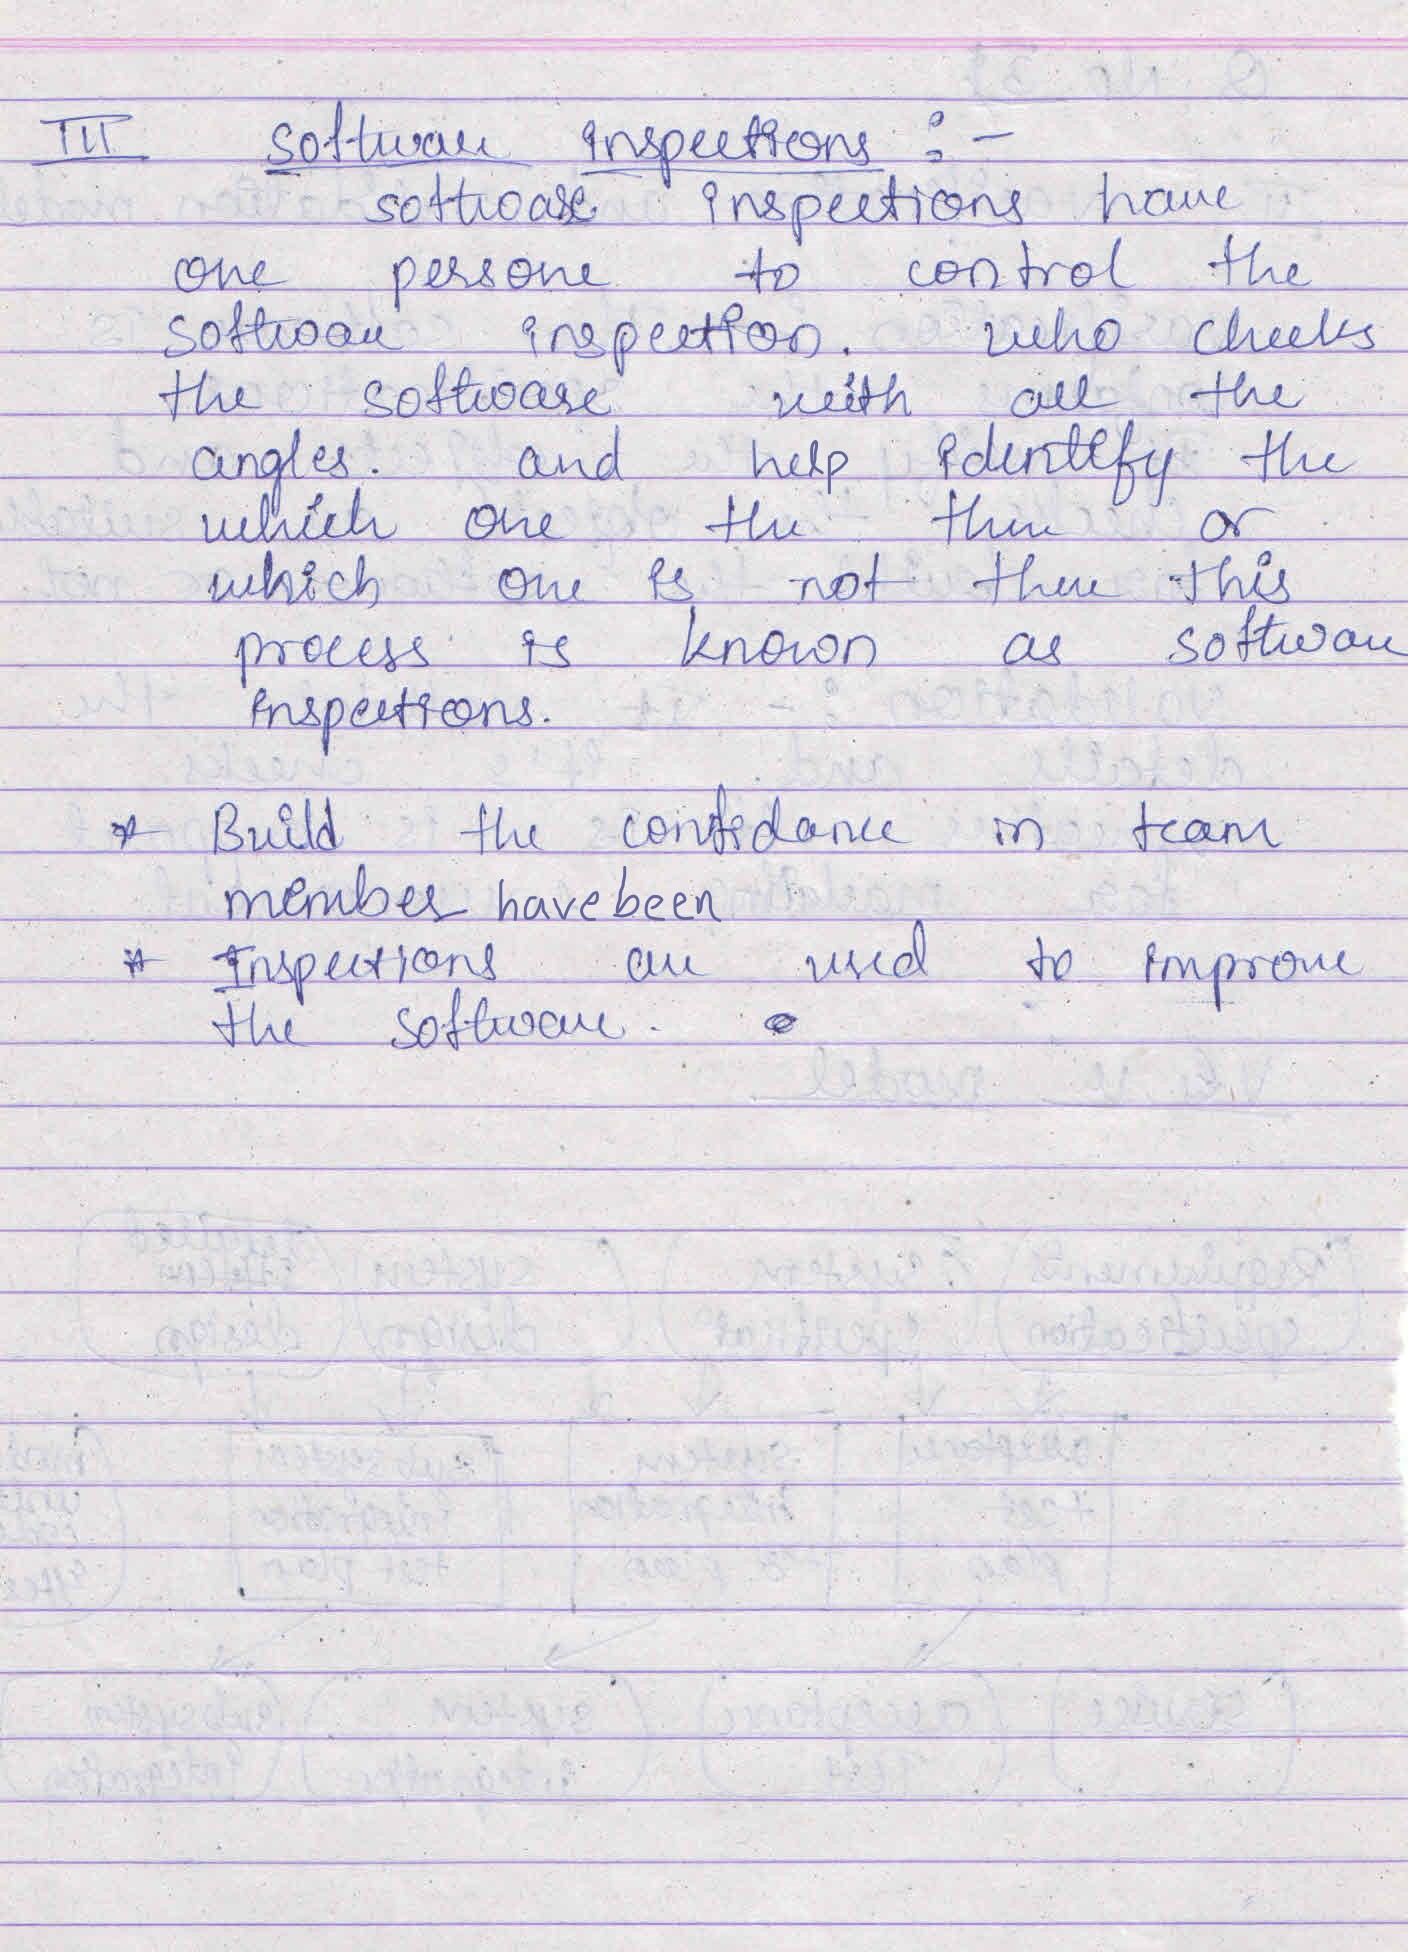 III Software Inspections :-
software inspections have
one persone to control the
software inspection. who checks
the software with all the
angles. and help identify the
which one the there or
which one is not there this
process is known as software
inspections.
* Build the confidance in team
member have been
* Inspections are used to improve
the software.